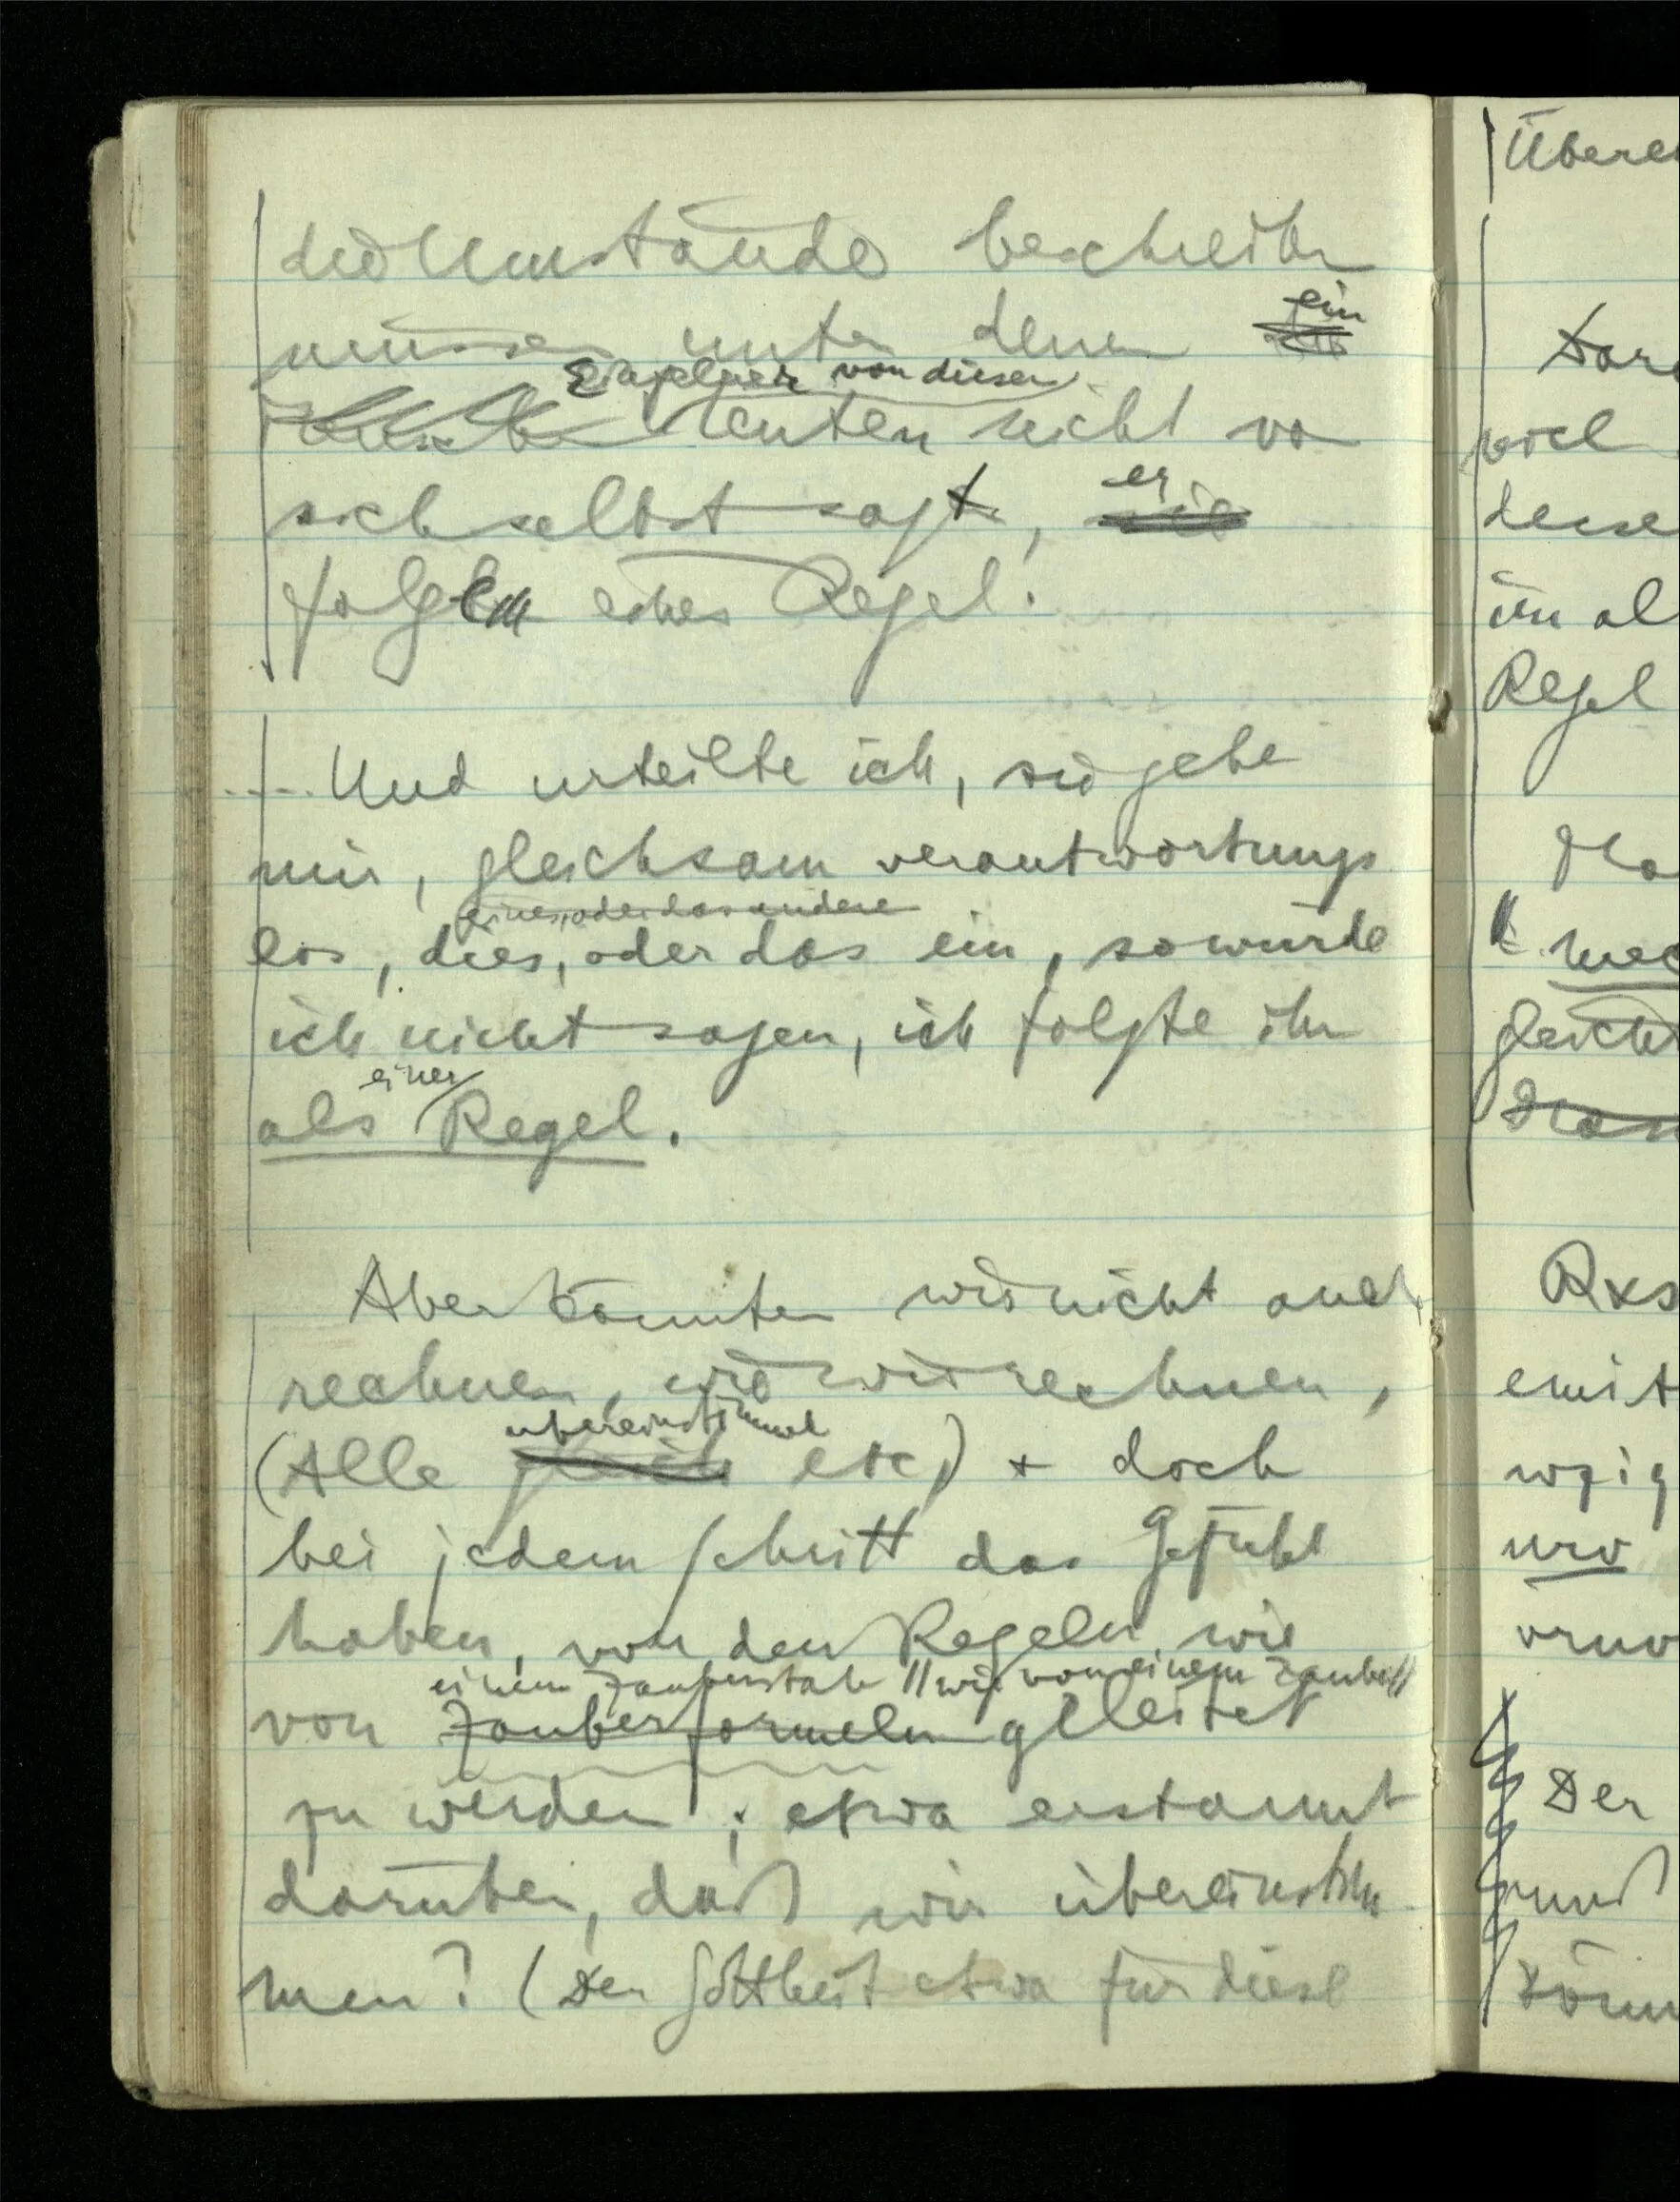 die Umstände beschreiben
müssen unter denen ein
Einzelner von diesen
Leuten nicht von
er
sich selbst sagt, sie
folgen einer Regel.
Und urteilte ich, sie gebe
mir, gleichsam verantwortungs
eines, oder das andere
los, dies, oder das ein, so würde
ich nicht sagen, ich folgte ihr
einer
als Regel.
Aber könnten wir nicht auch
rechnen, wie wir rechnen,
übereinstimmend
(Alle gleich etc) + doch
bei jedem Schritt das Gefühl
haben, von den Regeln, wie
einem Zauberstab // wie von einem Zauber //
von Zauberformeln geleitet
zu werden; etwa erstaunt
darüber, daß wir übereinstim
men? (Der Gottheit etwa für diese
Übere
Dar
viel
desse
im al
Regel
Ma
gleich
Rxs
emit
wzig
urv
vruv
Der
muß
könn